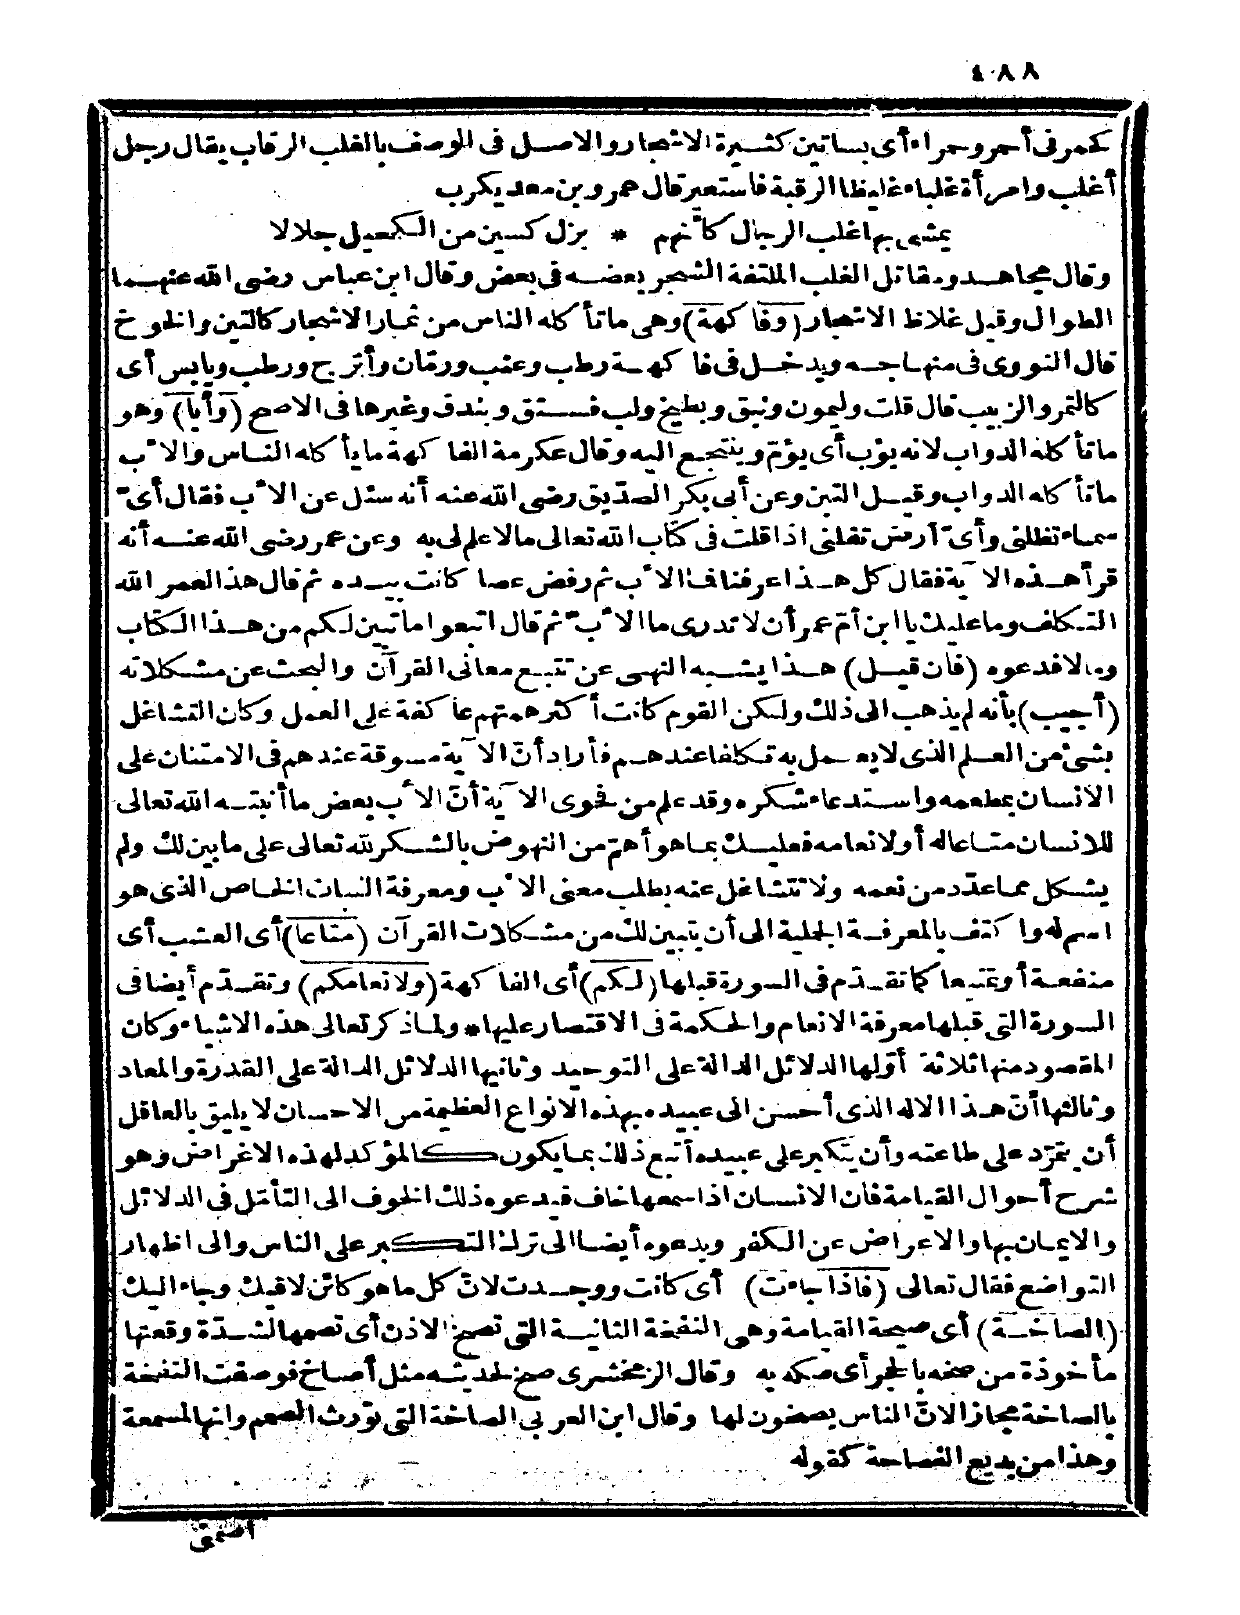 ٤٠٨٨
كحمر فى أحمر وحمراء أى بساتين كثيرة الاشجار والاصل فى الوصف بالغلب الرقاب يقال رجل
أغلب وامرأة غلباء غليظا الرقبة فاستعير قال عمرو بن معديكرب
يمشى بها غلب الرجال كأنهم * بزل كسين من الكحيل جلالا
وقال مجاهد ومقاتل الغلب الملتفة الشجر بعضه فى بعض وقال ابن عباس رضى الله عنهما
الطوال وقيل غلاظ الاشجار (وفاكهة) وهى ما تأكله الناس من ثمار الاشجار كالتين والخوخ
قال النووى فى منهاجه ويدخل فى فاكهة رطب وعنب ورمّان وأترج ورطب ويابس أى
كالتمر والزبيب قال قلت وليمون ونبق وبطيخ ولب فستق وبندق وغيرها فى الاصح (وأبا) وهو
ما تأكله الدواب لانه يؤب أى يؤمّ وينتجع اليه وقال عكرمة الفاكهة ما يأكله الناس والاب
ما تأكله الدواب وقيل التبن وعن أبى بكر الصدّيق رضى الله عنه أنه سئل عن الابّ فقال أىّ
سماء تظلنى وأىّ أرض تقلنى اذا قلت فى كتاب الله تعالى ما لا علم لى به وعن عمر رضى الله عنه أنه
قرأ هذه الآية فقال كل هذا عرفنا فما الابّ ثم رفض عصا كانت بيده ثم قال هذا لعمر الله
التكلف وما عليك يا ابن أمّ عمر أن لا تدرى ما الابّ ثم قال اتبعوا ما تبين لكم من هذا الكتاب
وما لا فدعوه (فان قيل) هذا يشبه النهى عن تتبع معانى القرآن والبحث عن مشكلاته
(أجيب) بأنه لم يذهب الى ذلك ولكن القوم كانت أكثر همتهم عاكفة على العمل وكان التشاغل
بشئ من العلم الذى لا يعمل به تكلفا عندهم فأراد أنّ الآية مسوقة عندهم فى الامتنان على
الانسان بمطعمه واستدعاء شكره وقد علم من فحوى الآية أنّ الابّ بعض ما أنبته الله تعالى
للانسان متاعا له أو لانعامه فعليك بما هو أهمّ من النهوض بالشكر لله تعالى على ما بين لك ولم
يشكل مما عدّد من نعمه ولا تتشاغل عنه بطلب معنى الابّ ومعرفة النبات الخاص الذى هو
اسم له واكتف بالمعرفة الجملية الى أن يتبين لك من مشكلات القرآن (متاعا) أى العشب أى
منفعة أو تمتيعا كما تقدّم فى السورة قبلها (لكم) أى الفاكهة (ولانعامكم) وتقدّم أيضا فى
السورة التى قبلها معرفة الانعام والحكمة فى الاقتصار عليها * ولما ذكر تعالى هذه الاشياء وكان
المقصود منها ثلاثة أوّلها الدلائل الدالة على التوحيد وثانيها الدلائل الدالة على القدرة والمعاد
وثالثها أنّ هذا الاله الذى أحسن الى عبيده بهذه الانواع العظيمة من الاحسان لا يليق بالعاقل
أن يتمرّد على طاعته وأن يتكبر على عبيده أتبع ذلك بما يكون كالمؤكد لهذه الاغراض وهو
شرح أحوال القيامة فان الانسان اذا سمعها خاف فيدعوه ذلك الخوف الى التأمّل فى الدلائل
والايمان بها والاعراض عن الكفر ويدعوه أيضا الى ترك التكبر على الناس والى اظهار
التواضع فقال تعالى (فاذا جاءت) أى كانت ووجدت لانّ كل ما هو كائن لاقيك وجاء اليك
(الصاخة) أى صيحة القيامة وهى النفخة الثانية التى تصخ الاذن أى تصمها لشدّة وقعتها
مأخوذة من صخه بالحجر أى صكه به وقال الزمخشرى صخ لحديثه مثل أصاخ فوصفت النفخة
بالصاخة مجازا لانّ الناس يصخون لها وقال ابن العربى الصاخة التى تورث الصمم وانها لمسمعة
وهذا من بديع الفصاحة كقوله
أصمنى